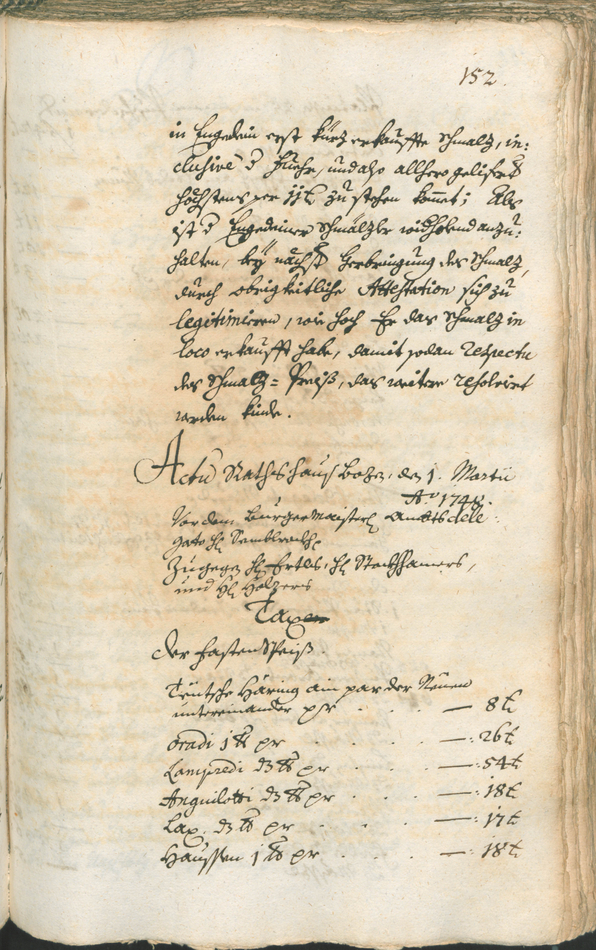 152.
in Engedein erst kürz erkauffte Schmalz, in:
clusive d Fuehr, und also allhero gelifert
höchstens per 11 t zu stehen komet; Als
ist d Engedeiner Schmälzler widholend anzu:
halten, bey nächst Herbringung des Schmalz,
durch obrigkeitliche Attestation sich zu
legitimieren, wie hoch Er das Schmalz in
loco erkaufft habe, damit sodan respectu
des Schmalz = Preiß, das weitere resolvirt
werden künde.
Actũ Rathshaus Bozen, den 1. Martii
Aõ 1748.
Vor dem Burgermaisterl Ambts dele:
gato H
Zugegen H Ertles, H Stockhhamers,
und H Holzers
Taxe
der Fasten Speiß.
Teutsche Häring ain par der Neuen
untereinander pr . — 8 t
oradi 1 ℔ pr . . . — : 26 t
Lampredi d ℔ pr . . — : 54 t
Anguilotti d ℔ pr . . — : 18 t
Lax. d ℔ pr . . . — : 17 t
Haussen 1 ℔ pr . . — : 18 t